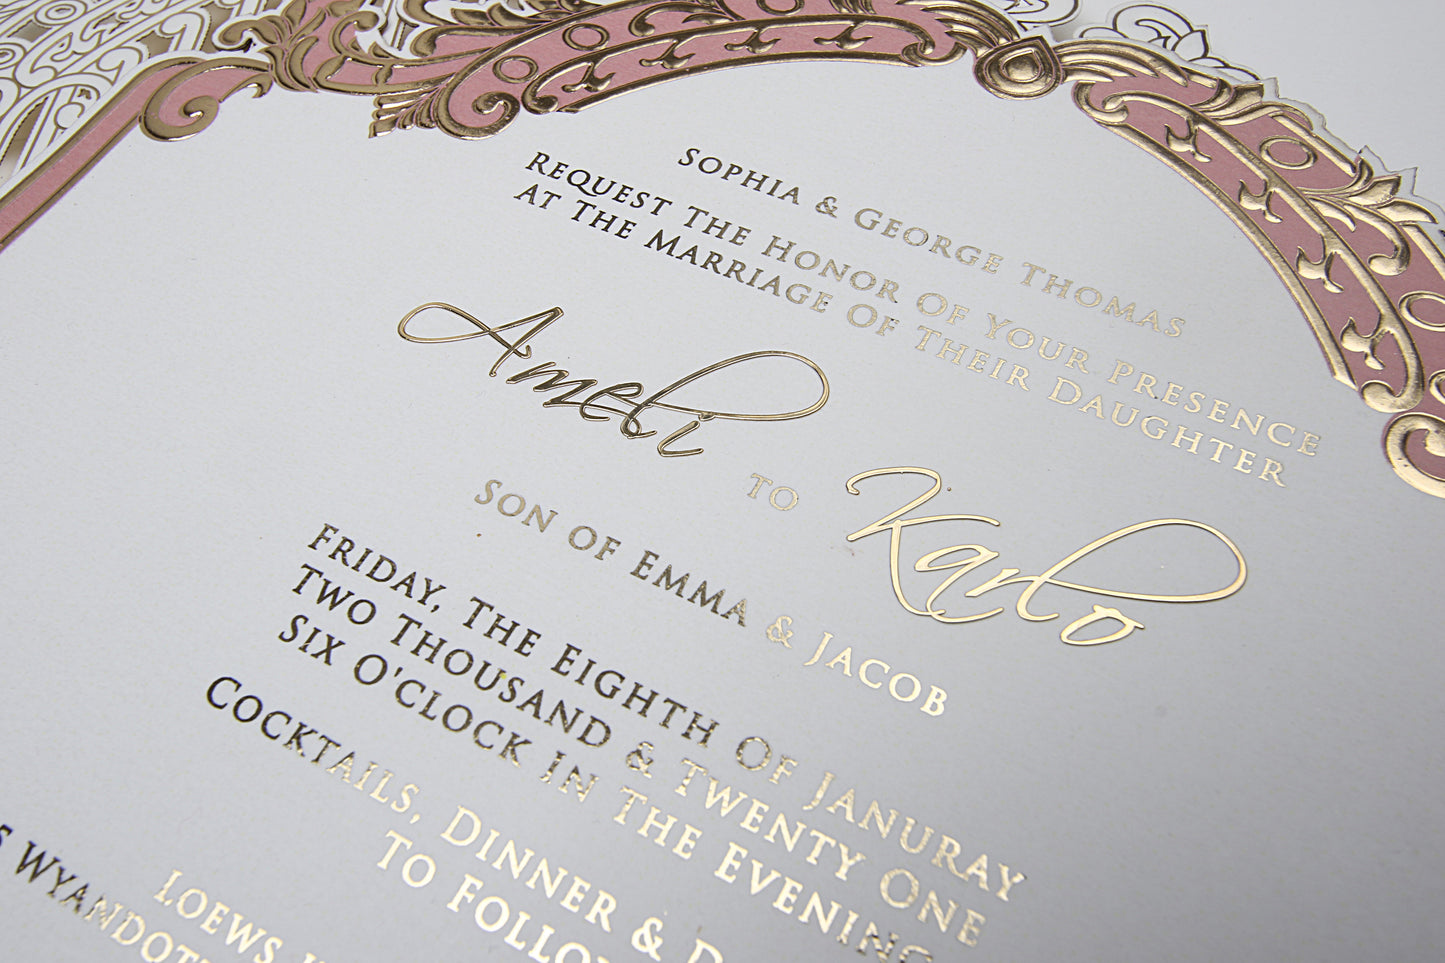 SOPHIA & GEORGE THOMAS
REQUEST THE HONOR OF YOUR PRESENCE
AT THE MARRIAGE OF THEIR DAUGHTER
Ameli
TO
Karlo
SON OF EMMA & JACOB
FRIDAY, THE EIGHTH OF JANURAY
TWO THOUSAND & TWENTY ONE
SIX O'CLOCK IN THE EVENING
COCKTAILS, DINNER &
TO
LOEWS